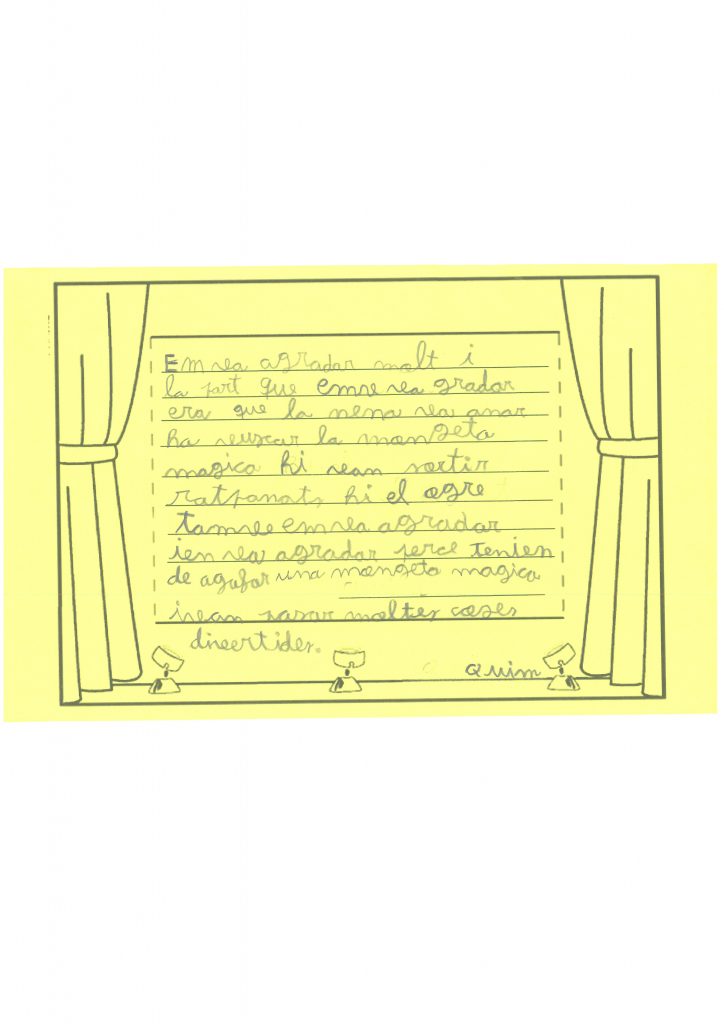 Em va agradar molt i
la part que emve va gradar
era que la nena va anar
ha vuscar la mongeta
magica hi van sortir
ratpanats hi el ogre
tamve em va agradar
ien va agradar perce tenien
de agafar una mongeta magica
ivan pasar moltes coses
divertides.
Quim